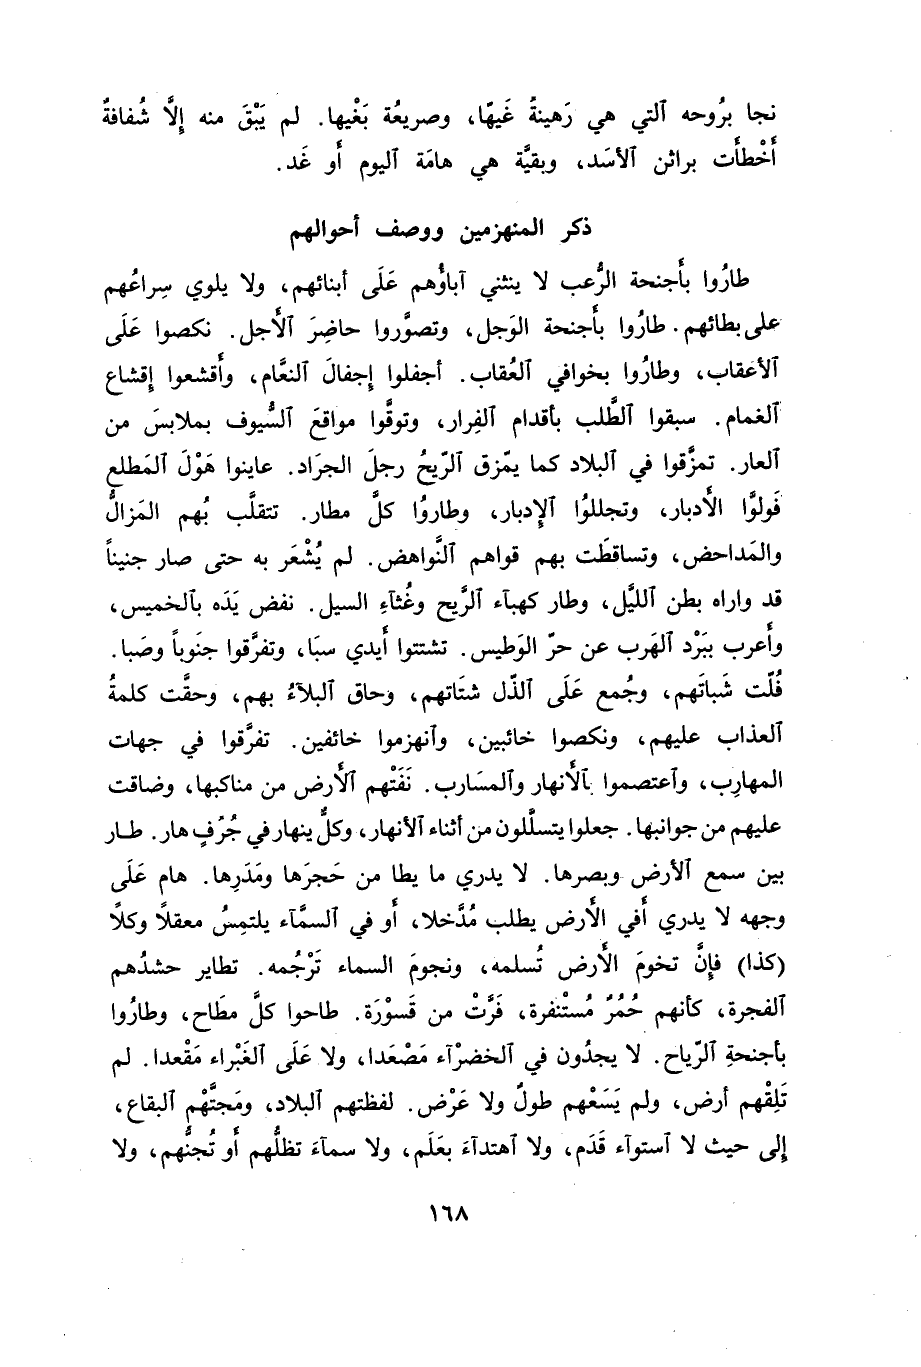 نجا برُوحه ٱلتي هي رَهينةُ غَيهّا، وصريعُة بَغْيها. لم يَبْقَ منه إلَّا شُفافةٌ
أَخْطأَت براثن ٱلأسَد، وبقيَّة هي هامَة ٱليوم أَو غَد.
ذكر المنهزمين ووصف أحوالهم
طارُوا بأَجنحة الرُّعب لا ينثني آباؤُهم عَلَى أبنائهم، ولا يلوي سِراعُهم
على بطائهم. طارُوا بأَجنحة الوَجل، وتصوَّروا حاضِرَ ٱلأَجل. نكصوا عَلَى
ٱلأعقاب، وطارُوا بخوافي ٱلعُقاب. أجفلوا إجفالَ ٱلنعَّام، وأَقشعوا إقشاع
ٱلغمام. سبقوا ٱلطَّلب بأقدام ٱلفِرار، وتوقَّوا مواقعَ ٱلسُّيوف بملابسَ من
ٱلعار. تمزَّقوا في ٱلبلاد كما يمّزق ٱلرّيحُ رجلَ الجرَاد. عاينوا هَوْلَ ٱلمَطلع
فَولوَّا الأَدبار، وتجللوُا ٱلإدبار، وطاروُا كلَّ مطار. تتقلَّب بُهم المَزالُّ
والمَداحض، وتساقطَت بهم قواهم ٱلنَّواهض. لم يُشْعَر به حتى صار جنيناً
قد واراه بطن ٱلليَّل، وطار كهبآء ٱلرَّيح وغُثآءِ السيل. نفض يَدَه بٱلخميس،
وأَعرب ببَرْد ٱلهَرب عن حرّ الوَطيس. تشتتوا أَيدي سبَا، وتفرَّقوا جنَوباً وصَبا.
فُلّت شَباتَهم، وجُمع عَلَى ٱلذّل شتَاتهم، وحاق البلآءُ بهم، وحقَّت كلمةُ
ٱلعذاب عليهم، ونكصوا خائبين، وٱنهزموا خائفين. تفرَّقوا في جهات
المهارِب، وٱعتصموا بٱلأَنهار وٱلمسَارب. نَفَتْهم ٱلأَرض من مناكبها، وضاقت
عليهم من جوانبها. جعلوا يتسلَّلون من أثناء ٱلأنهار، وكلٌّ ينهار في جُرُفٍ هار. طـار
بين سمع ٱلأرض وبصرها. لا يدري ما يطا من حَجرَها ومَدَرِها. هام عَلَى
وجهه لا يدري أَفي الأَرض يطلب مُدَّخلا، أَو في ٱلسمَّآء يلتمِسُ معقلاً وكلاً
(كذا) فإنَّ تخومَ الأَرض تُسلمه، ونجومَ السماء تَرْجُمه. تطاير حشدُهم
ٱلفجرة، كأنهم حُمُرٌ مُسْتنفرة، فَرَّتْ من قَسوْرَة. طاحوا كلَّ مطَاح، وطارُوا
بأَجنحةِ ٱلرّياح. لا يجدُون في ٱلخضرْآء مَصْعَدا، ولا عَلَى ٱلغَبْراء مَقْعدا. لم
تَلِقْهم أرض، ولم يَسَعْهم طولٌ ولا عَرْض. لفظتهم ٱلبلاد، ومَجتَّهْم ٱلبقاع،
إلى حيث لا ٱستوآء قَدَم، ولا ٱهتدآءَ بعَلَم، ولا سمآءَ تظلُّهم أَو تُجنُّهم، ولا
١٦٨